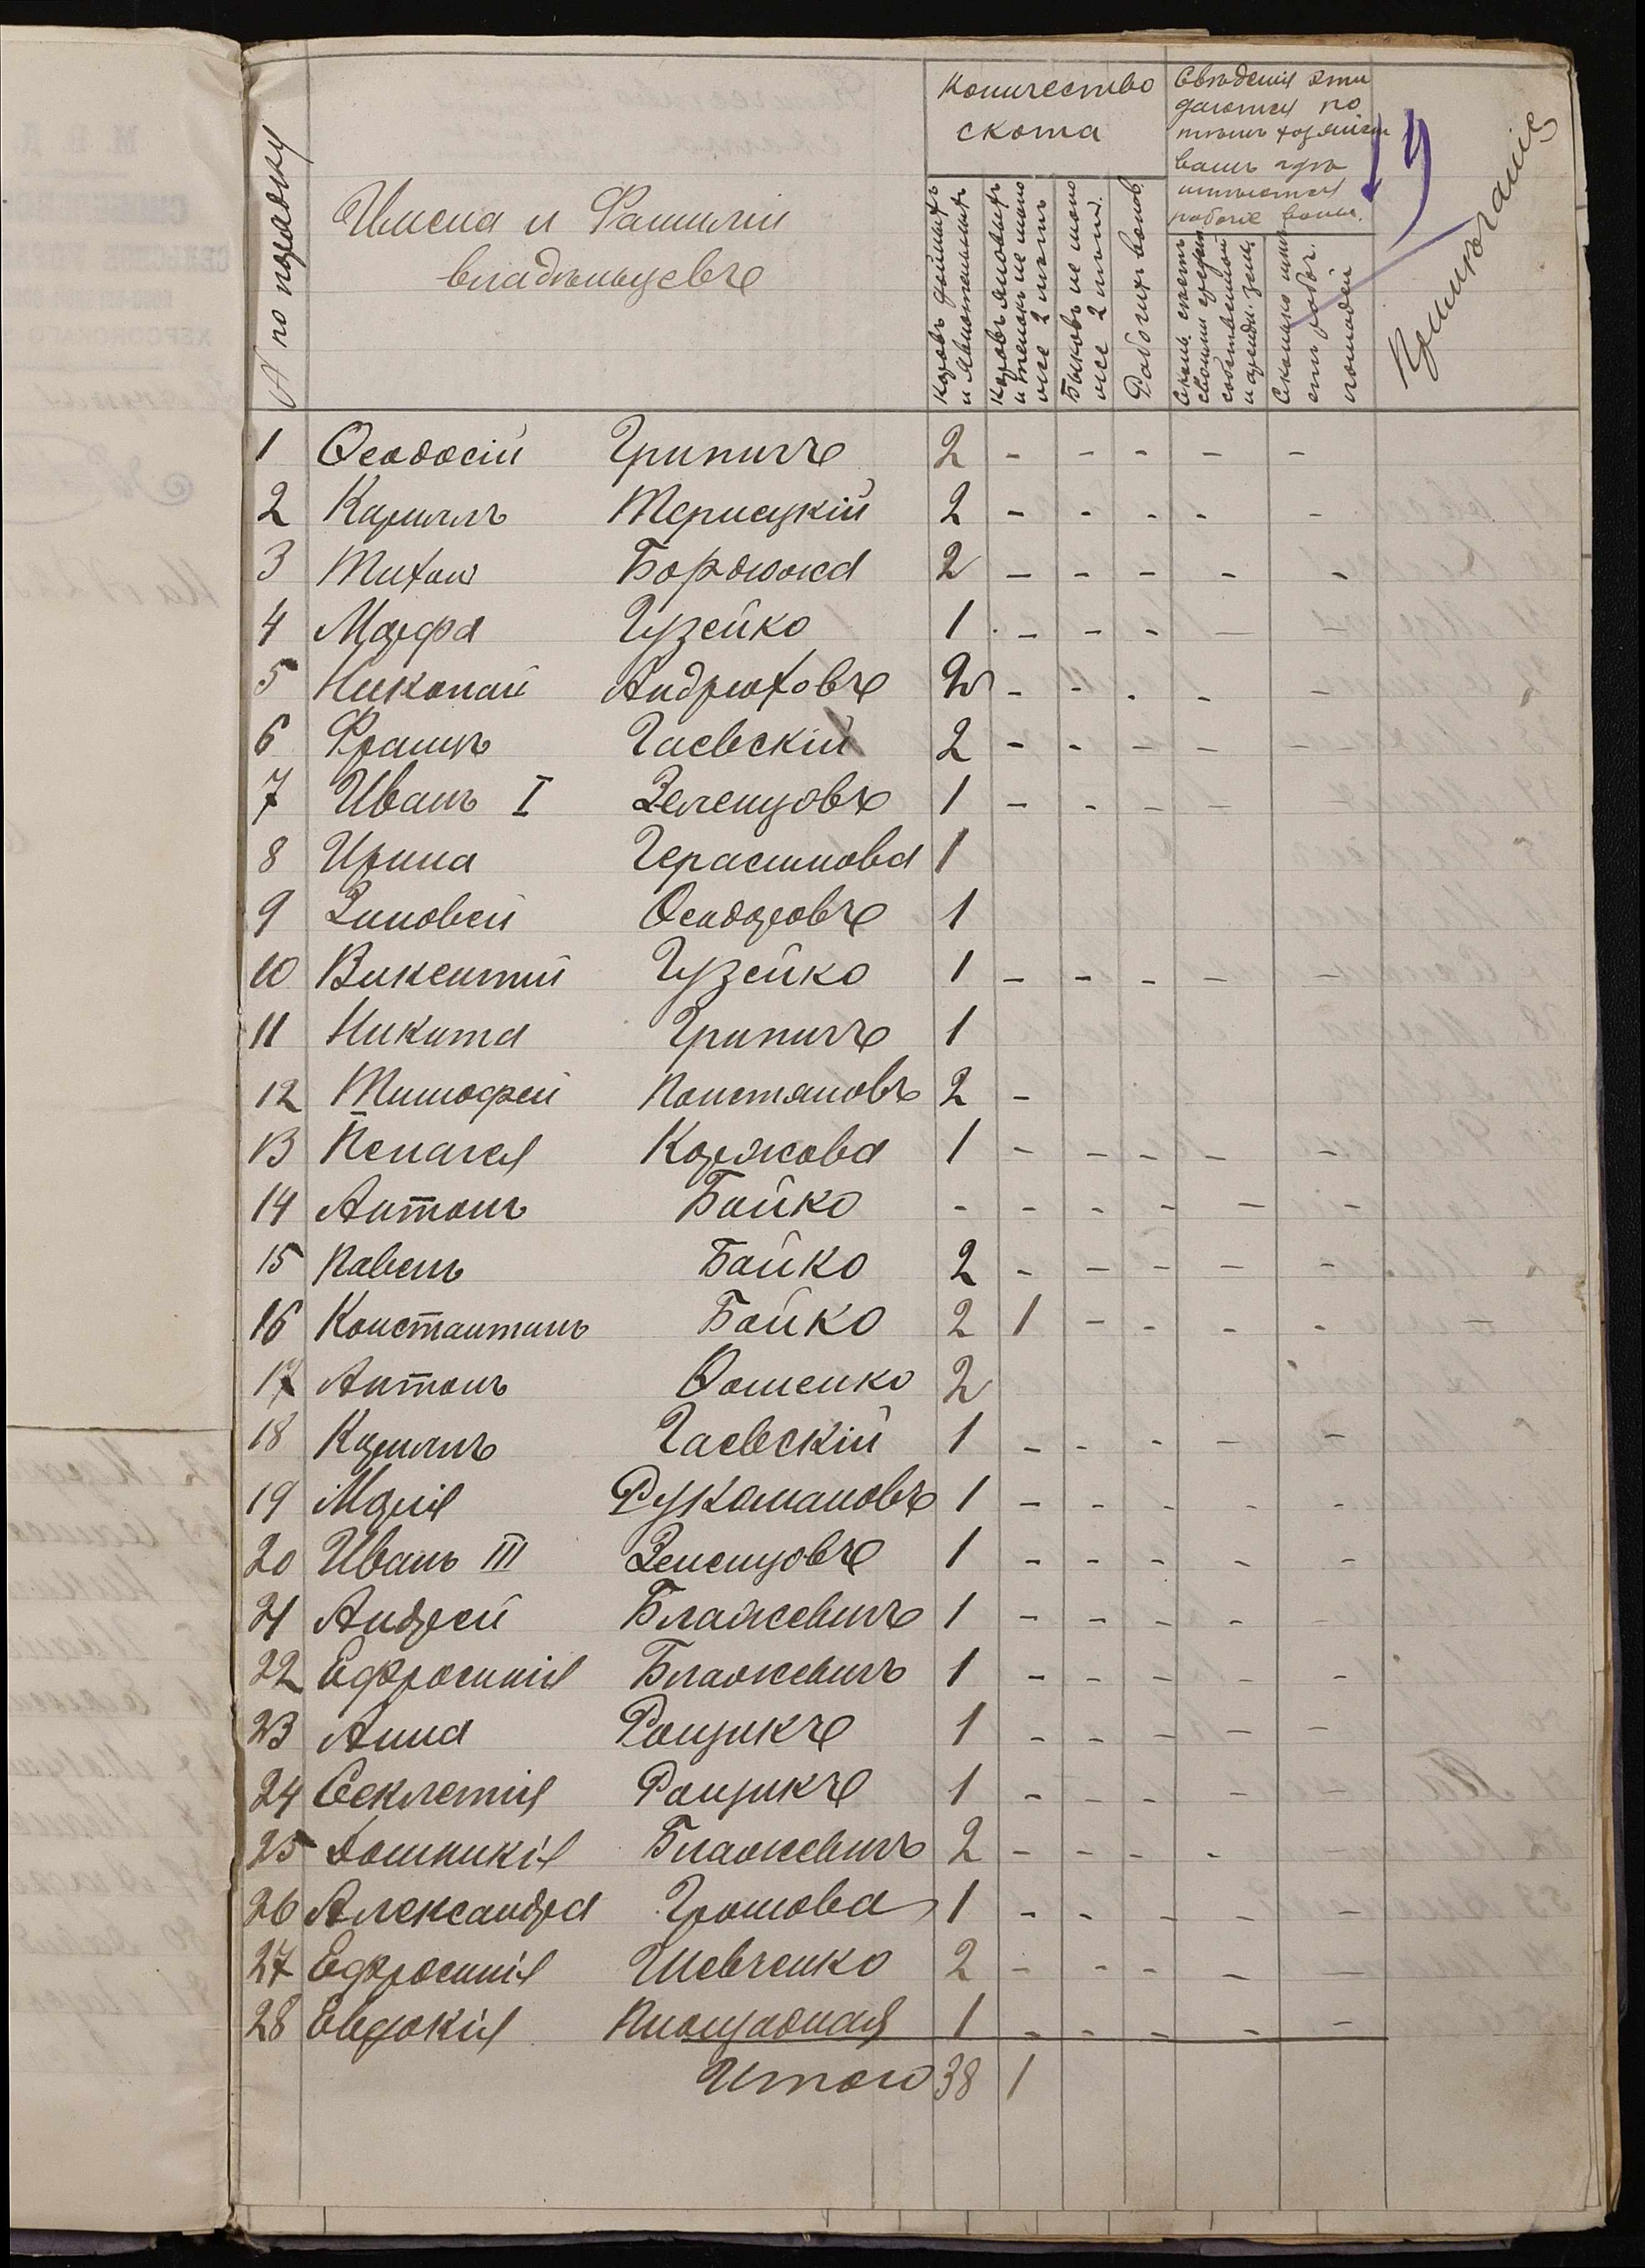 № по порядку
Имена и Фамиліи
владѣльцевъ
Количество
скота
Коровъ дойныхъ
и
Коровъ яловыхъ
и телокъ не моло
же 2 лѣтъ
Быковъ не моло
же 2 лѣтъ.
Рабочихъ воловъ
Свѣденія эти
даются по
тѣмъ хозяйст
вамъ гдѣ
имѣются
рабочіе волы.
собственной
и аренд. земл.
Сколько имѣ
етъ рабоч.
лошадей
Примѣчаніе
9
1 Ѳеодосій Грипичъ 2 - - - - -
2 Кириллъ Терлецкій 2 - - - - -
3 Михаил Бордюжа 2 - - - - -
4 Марфа Гузейко 1 - - - - -
5 Николай Андрюховъ 2 - - - - -
6 Францъ Гаевскій 2 - - - - -
7 Иванъ I Зеленцовъ 1 - - - - -
8 Ирина Герасимова 1
9 Зиновей Ѳеодоровъ 1
10 Викентий Гузейко 1 - - - - -
11 Никита Грипичъ 1
12 Тимофей Поистановъ 2 -
13 Пелагея Коржова 1 - - - - -
14 Антонъ Бойко - - - - - -
15 Павелъ Бойко 2 - - - - -
16 Константинъ Бойко 2 1 - - - -
17 Антонъ Ѳоменко 2
18 Кириллъ Гаевскій 1 - - - - -
19 Марія Рукомановъ 1 - - - - -
20 Иванъ III Зеленцовъ 1 - - - - -
21 Андрей Блажевичъ 1 - - - - -
22 Ефросинія Блажевичъ 1 - - - - -
23 Анна Рощикъ 1 - - - - -
24 Секлетия Рощикъ 1 - - - - -
25 Домникія Блажевичъ 2 - - - -
26 Александра Громова 1 - - - - -
27 Ефросинія Шевченко 2 - - - - -
28 Евдокія Площадная 1 - - - - -
Итого 38 1